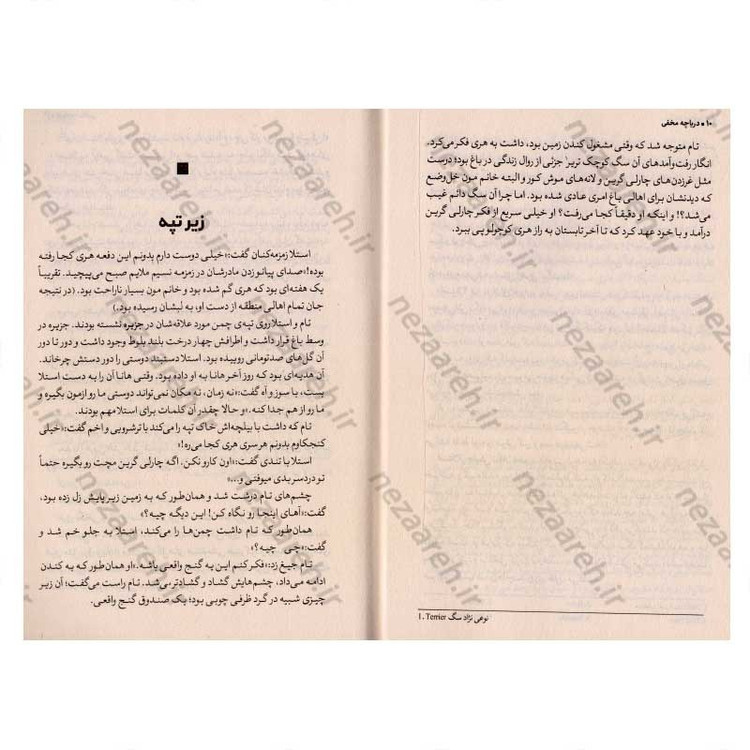 ۱۰ ■ دریاچه مخفی
تام متوجه شد که وقتی مشغول کندن زمین بود، داشت به هری فکر می‌کرد.
انگار رفت‌وآمدهای آن سگ کوچک تریر۱ جزئی از روال زندگی در باغ بود؛ درست
مثل غرزدن‌های چارلی گرین و لانه‌های موش کور و البته خانم مون خل‌وضع
که دیدنشان برای اهالی باغ امری عادی شده بود. اما چرا آن سگ دائم غیب
می‌شد؟! و اینکه او دقیقاً کجا می‌رفت؟ او خیلی سریع از فکر چارلی گرین
درآمد و با خود عهد کرد که تا آخر تابستان به راز هری کوچولو پی ببرد.
1. Terrier نوعی نژاد سگ
زیر تپه
استلا زمزمه‌کنان گفت: «خیلی دوست دارم بدونم این دفعه هری کجا رفته
بوده!» صدای پیانو زدن مادرشان در زمزمه نسیم ملایم صبح می‌پیچید. تقریباً
یک هفته‌ای بود که هری گم شده بود و خانم مون بسیار ناراحت بود. (در نتیجه
جان تمام اهالی منطقه از دست او، به لبشان رسیده بود.)
تام و استلا روی تپه‌ی چمن مورد علاقه‌شان در جزیره نشسته بودند. جزیره در
وسط باغ قرار داشت و اطرافش چهار درخت بلند بلوط وجود داشت و دور تا دور
آن گل‌های صدتومانی روییده بود. استلا دستبند دوستی را دور دستش چرخاند.
آن هدیه‌ای بود که روز آخر هانا به او داده بود. وقتی هانا آن را به دست استلا
بست، با سوز و آه گفت: «نه زمان، نه مکان نمی‌تواند دوستی ما رو ازمون بگیره و
ما رو از هم جدا کنه.» و حالا چقدر آن کلمات برای استلا مهم بودند.
تام که داشت با بیلچه‌اش خاک تپه را می‌کند با ترشرویی و اخم گفت: «خیلی
کنجکاوم بدونم هر سری هری کجا می‌ره!»
استلا با تندی گفت: «اون کارو نکن. اگه چارلی گرین مچت رو بگیره حتماً
تو دردسر بدی میوفتی و...»
چشم‌های تام درشت شد و همان‌طور که به زمین زیر پایش زل زده بود،
گفت: «آهای اینجا رو نگاه کن! این دیگه چیه؟»
همان‌طور که تام داشت چمن‌ها را می‌کند، استلا به جلو خم شد و
گفت: «چی چیه؟»
تام جیغ زد: «فکر کنم این یه گنج واقعی باشه.» او همان‌طور که به کندن
ادامه می‌داد، چشم‌هایش گشاد و گشادتر می‌شد. تام راست می‌گفت؛ آن زیر
چیزی شبیه در گرد ظرفی چوبی بود؛ یک صندوق گنج واقعی.
nezaareh.ir